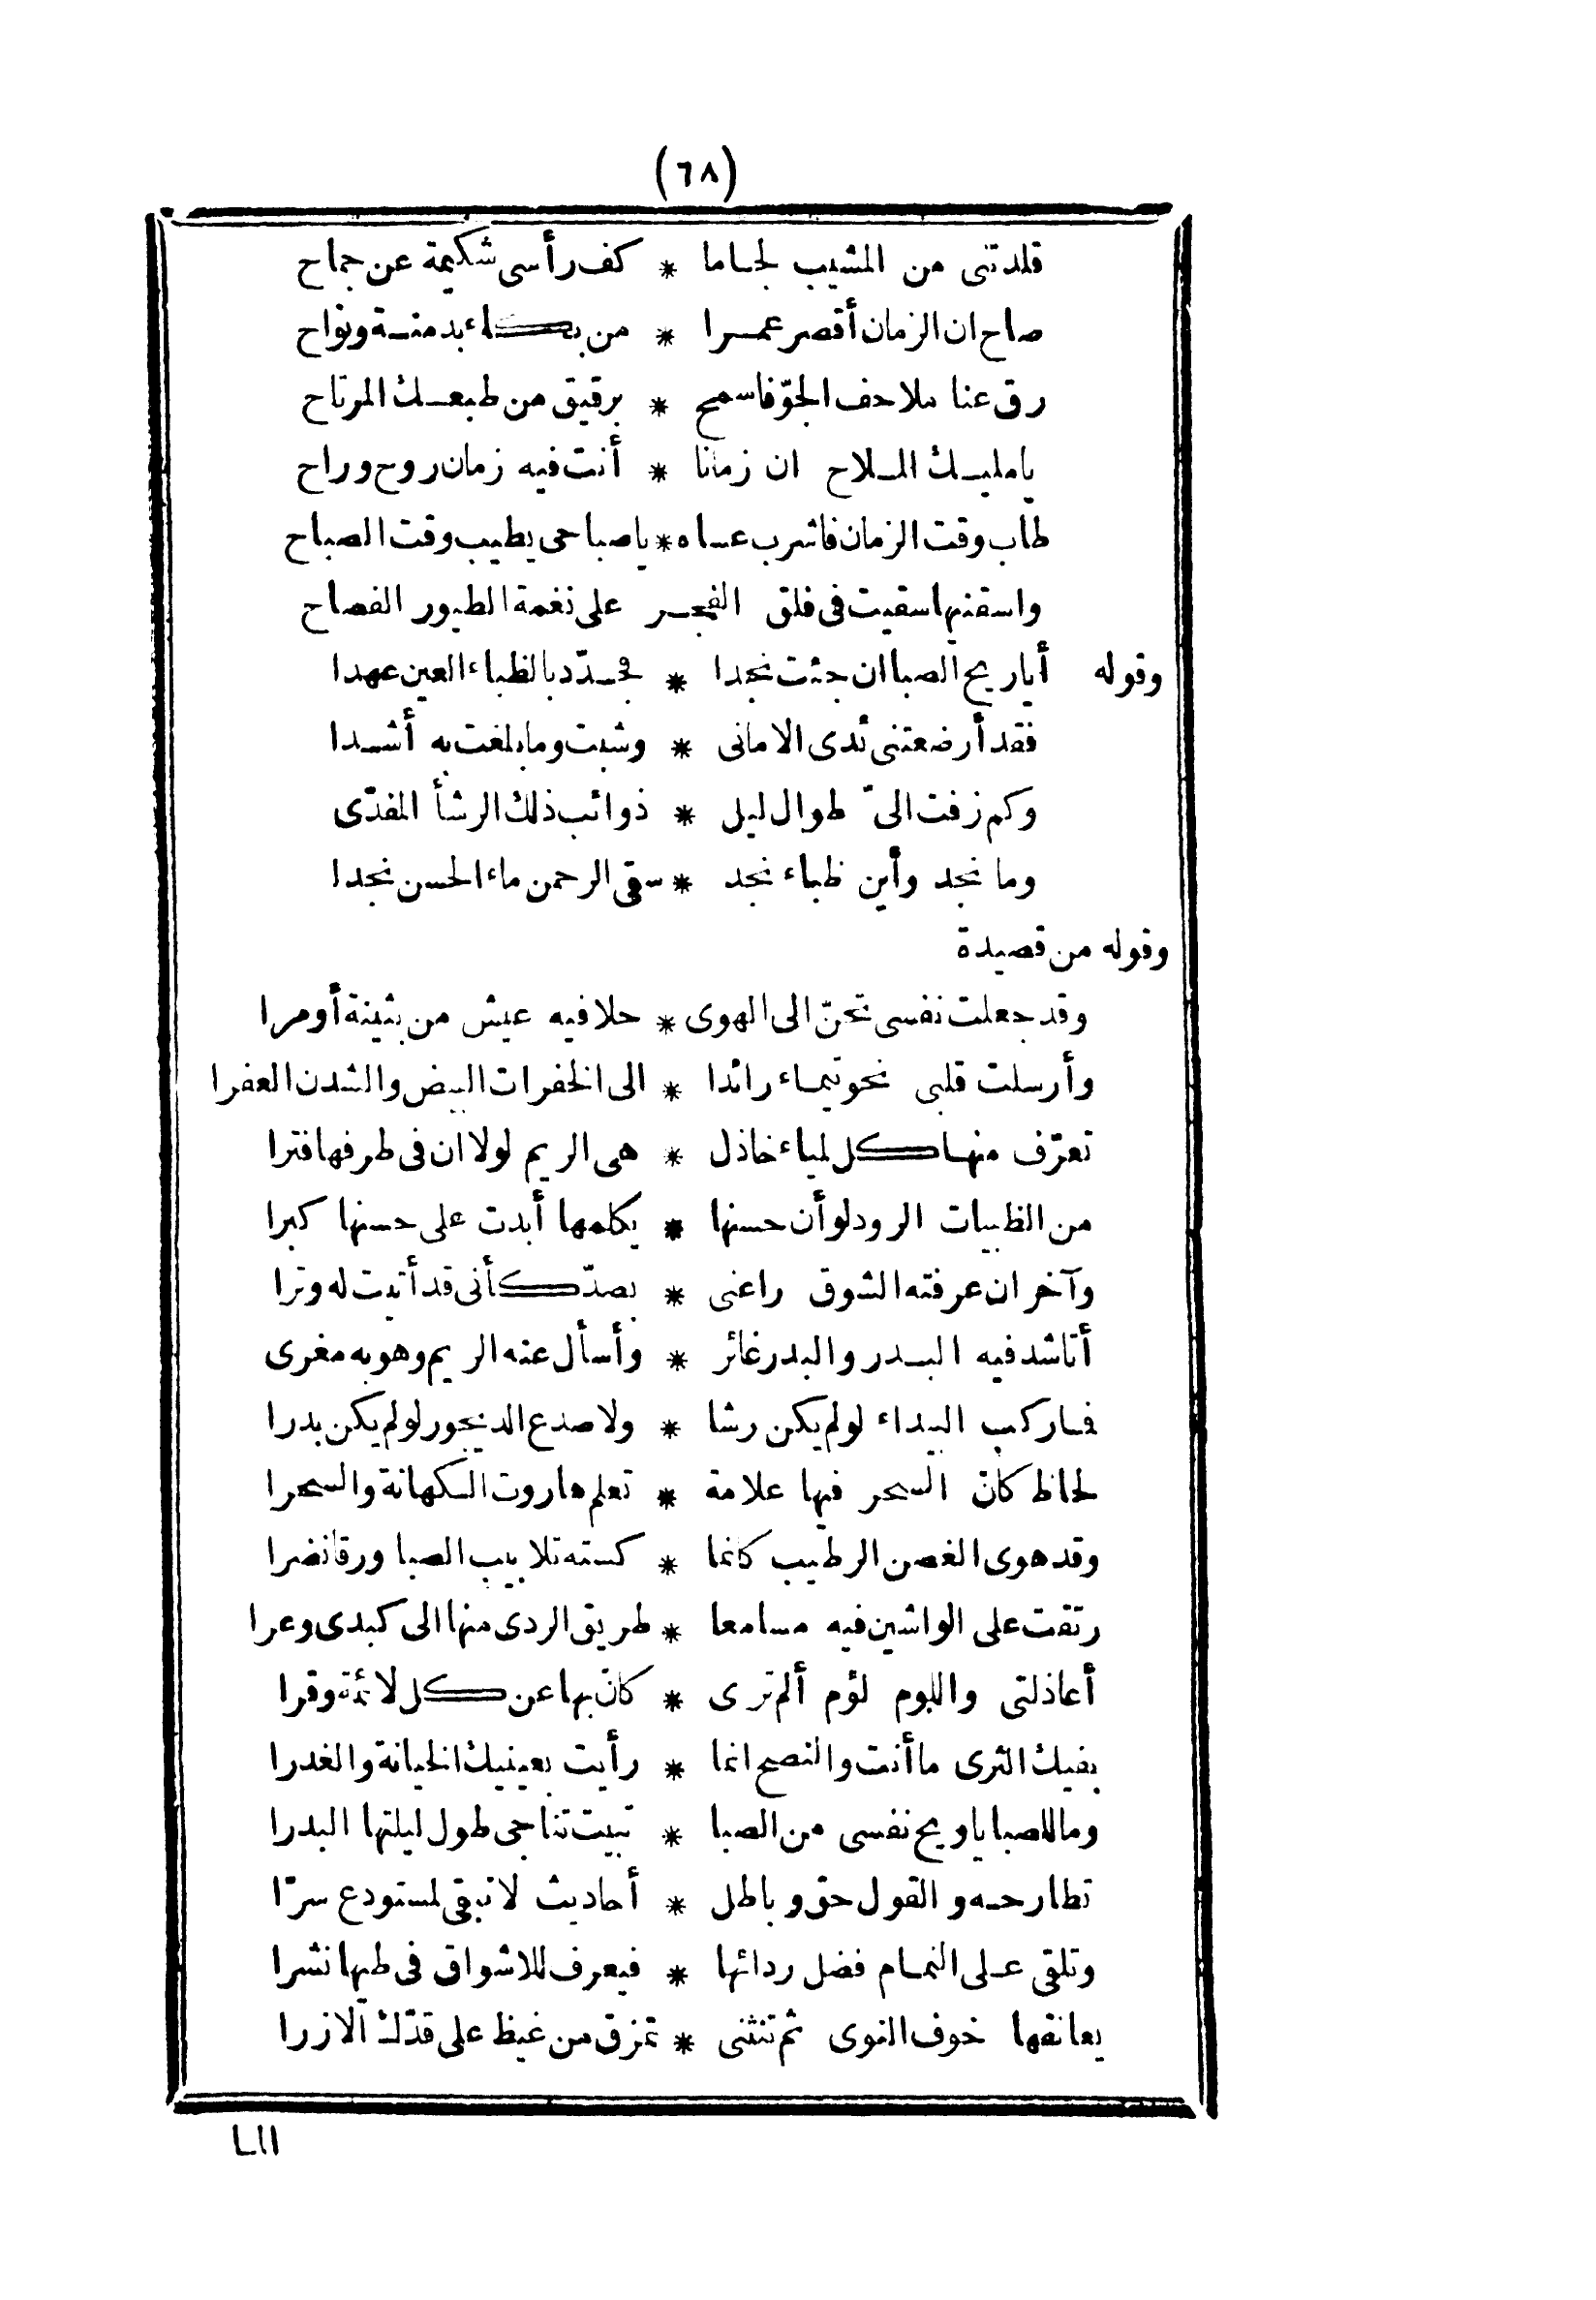 (٦٨)
قلدتنى من المشيب لجاما * كف رأسى شكيمة عن جماح
صاح ان الزمان أقصر عمرا * من بكاء بدمنة ونواح
رق عنا ملاحف الجوّ فاسمح * برقيق من طبعك المرتاح
يامليك الملاح ان زمانا * أنت فيه زمان روح وراح
طاب وقت الزمان فاشرب عساه * ياصباحى يطيب وقت الصباح
واسقنيها سقيت فى فلق الفجر على نغمة الطيور الفصاح
وقوله أيا ريح الصبا ان جئت نجدا * فجدّد بالظباء العين عهدا
فقد أرضعتنى ثدى الامانى * وشبت وما بلغت به أشدا
وكم زفت الىّ طوال ليل * ذوائب ذلك الرشأ المفدّى
وما نجد وأين ظباء نجد * سقى الرحمن ماء الحسن نجدا
وقوله من قصيدة
وقد جعلت نفسى تحنّ الى الهوى * حلا فيه عيش من بثينة أو مرا
وأرسلت قلبى نحو تيماء رائدا * الى الخفرات البيض والشدن العفرا
تعرّف منها كل لمياء خاذل * هى الريم لولا ان فى طرفها فترا
من الظبيات الرود لو أن حسنها * يكلمها أبدت على حسنها كبرا
وآخر ان عرفته الشوق راعنى * بصدّ كأنى قد أتيت له وترا
أناشد فيه البدر والبدر غائر * وأسأل عنه الريم وهو به مغرى
فاركب البيداء لو لم يكن رشا * ولا صدع الديجور لو لم يكن بدرا
لحاظ كانّ السحر فيها علامة * تعلم هاروت الكهانة والسحرا
وقد هوى الغصن الرطيب كانما * كسته تلابيب الصبا ورقا نضرا
رتقت على الواشين فيه مسامعا * طريق الردى منها الى كبدى وعرا
أعاذلتى واللوم لؤم ألم ترى * كانّ بها عن كل لائمة وقرا
بفيك الثرى ما أنت والنصح انما * رأيت بعينيك الخيانة والغدرا
وما للصبا ياويح نفسى من الصبا * تبيت تناجى طول ليلتها البدرا
تطارحه والقول حق وباطل * أحاديث لا تبقى لمستودع سرّا
وتلقى على النمام فضل ردائها * فيعرف للاشواق فى طيها نشرا
يعانقها خوف النوى ثم تنثنى * تمزق من غيظ على قدّك الازرا
لما